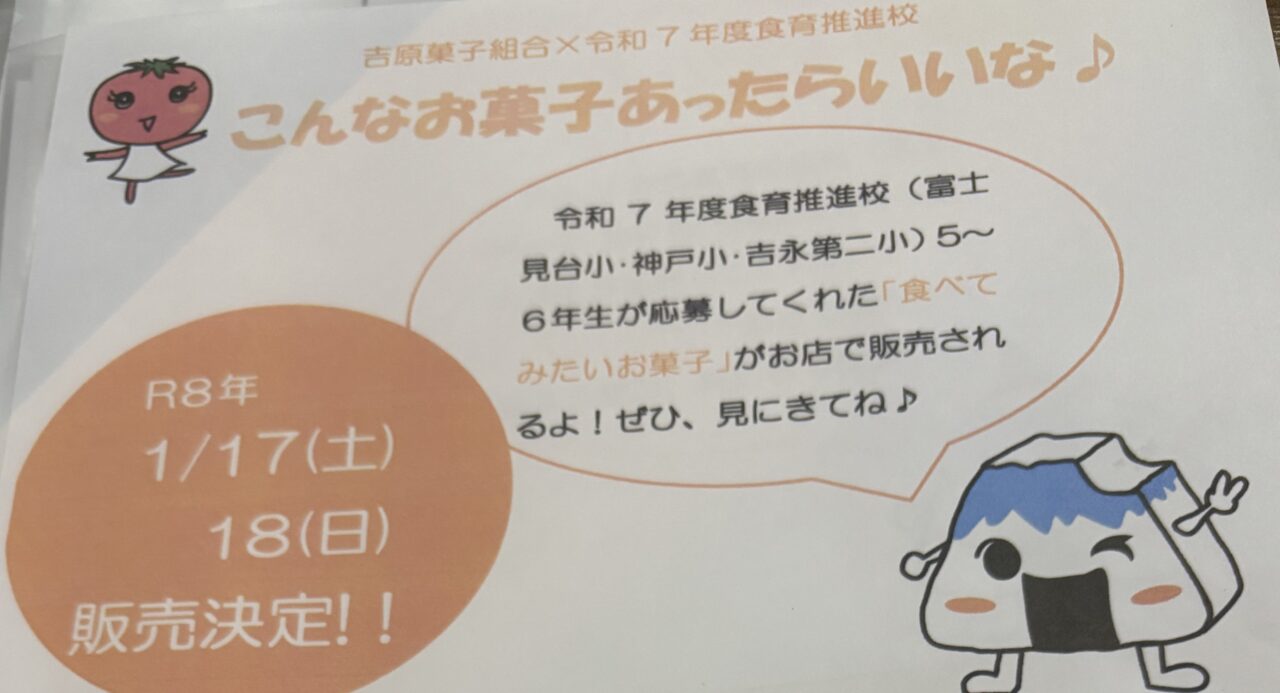 吉原菓子組合×令和7年度食育推進校
こんなお菓子あったらいいな♪
令和7年度食育推進校（富士
見台小・神戸小・吉永第二小）5～
6年生が応募してくれた「食べて
みたいお菓子」がお店で販売され
るよ！ぜひ、見にきてね♪
R8年
1/17(土)
18(日)
販売決定！！